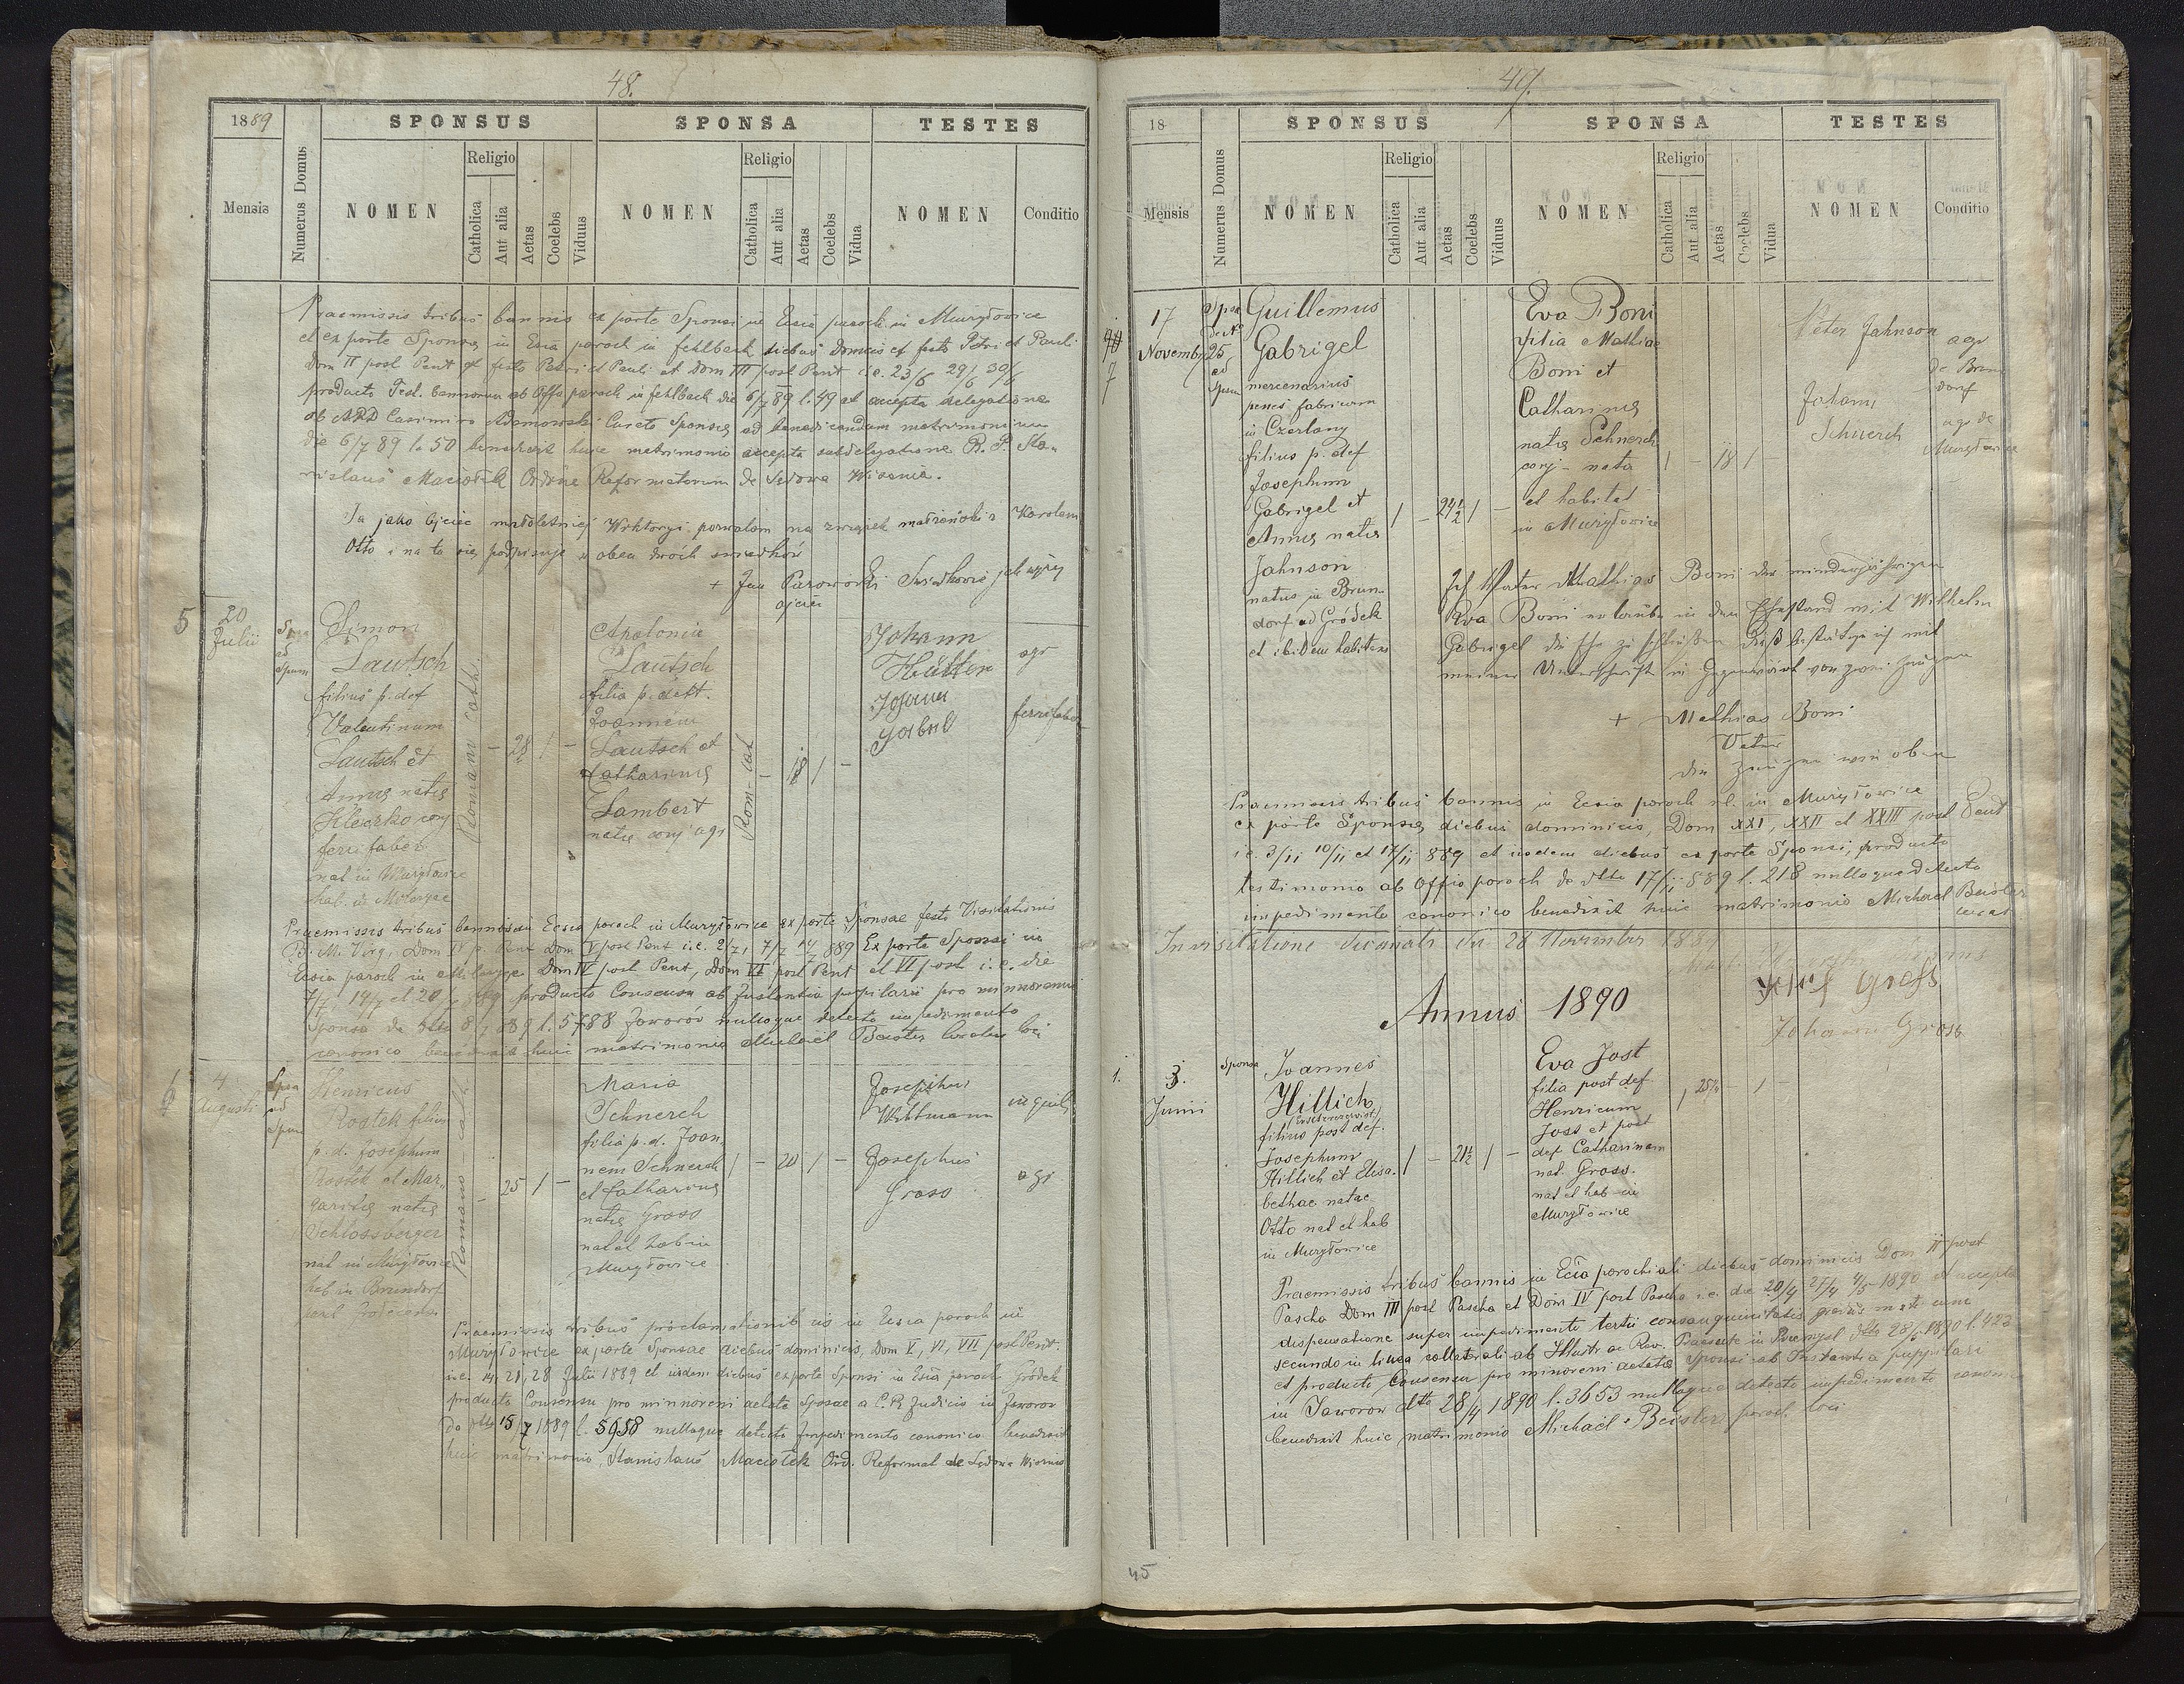 48.
1889
SPONSUS
SPONSA
TESTES
Mensis
Numerus Domus
NOMEN
Religio
Catholica
Aut alia
Aetas
Coelebs
Viduus
NOMEN
Religio
Catholica
Aut alia
Aetas
Coelebs
Vidua
NOMEN
Conditio
Praemissis tribus bannis ex parte Sponsi in Eccia paroch in Mużyłowice
et ex parte Sponsae in Eccia paroch in Fehlbach diebus Domcis et festo Petri et Pauli
Dom II post Pent et festo Petri et Pauli et Dom III post Pent i.e. 23/6 29/6 30/6
producto Test. bannorum ab Offo paroch in Fehlbach die 6/7 89 l. 49 et accepta delegatione
ab ARD Casimiro Adamowski Curato Sponsae ad benedicendum matrimonium
die 6/7 89 l. 50 benedixit huic matrimonio accepta subdelegatione R. P. Sta-
nislaus Maciołek Ordine Reformatorum de Sądowa Wisznia.
Ja jako Ojciec małoletniej Wiktoryi pozwalam na związek małżeński z Karolem
Otto i na to się podpisuję w obec dwóch świadków
+ Jan Parowski Świadkowie jak wyżej
ojciec
5
20
Julii
Spsa
ad
Spum
Simon
Lautsch
filius p. def
Valentinum
Lautsch et
Annae natae
Kleczko conj
ferri faber
nat in Mużyłowice
hab. in
Romano cath.
– 28 1 –
Apolonia
Lautsch
filia p. deft.
Joannem
Lautsch et
Catharinae
Lambert
natae conj agr
Rom-cat
– 18 1 –
Johann
Hütter
agr
Johann
ferrifaber
Praemissis tribus bannis in Eccia paroch in Mużyłowice ex parte Sponsae festo Visitationis
B. M. Virg, Dom IV p. Pent Dom V post Pent i.e. 2/7, 7/7 14/7 889 Ex parte Sponsi in
Eccia paroch in Dom IV post Pent, Dom V post Pent et VI post i.e. die
7/7 14/7 et 20/7 889 producto Consensu ab Instantia pupilari pro minorenni
Sponsa de dtto 8/7 889 l. 5788 Jaworow nulloque detecto impedimento
canonico benedixit huic matrimonio Michael Beister Curatus loci
6
4
Augusti
Spsa
ad
Spum
Henricus
Rostek filius
p. d. Josephum
Rostek et Mar-
garitae natae
Schlossberger
nat in Mużyłowice
hab in Brundorf
Romano – cath
– 25 1 –
Maria
Schnerch
filia p. d. Joan
nem Schnerch
et Catharinae
natae Gross
nat et hab in
Mużyłowice
1 – 20 1 –
Josephus
Wittmann
inquil
Josephus
Gross
agr
Praemissis tribus proclamationibus in Eccia paroch in
Mużyłowice ex parte Sponsae diebus dominicis, Dom V, VI, VII post Pent.
i.e. 14, 21, 28 Julii 1889 et iisdem diebus ex parte Sponsi in Eccia paroch Gródek
producto Consensu pro minnoreni aetate Sposae a C. R. Judicio in Jaworow
do dtto 15/7 1889 l. 5958 nulloque detecto Impedimento canonico benedixit
huic matrimonio Stanislaus Maciołek Ord. Reformat de Sądowa Wisznia
49.
18
SPONSUS
SPONSA
TESTES
Mensis
Numerus Domus
NOMEN
Religio
Catholica
Aut alia
Aetas
Coelebs
Viduus
NOMEN
Religio
Catholica
Aut alia
Aetas
Coelebs
Vidua
NOMEN
Conditio
7
17
Novemb
Spsa
de No
25,
ad
Spum
Guillemus
Gabrigel
mercenarius
penes fabricam
in Czerlany
filius p. def
Josephum
Gabrigel et
Annae natae
Jahnson
natus in Brun-
dorf ad Gródek
et ibidem habitans
1 – 24½ 1 –
Eva Boni
filia Mathiae
Boni et
Catharinae
natae Schnerch
conj – nata
et habitat
in Mużyłowice
1 – 18 1
Peter Jahnson
agr
de Brun
dorf
Johann
Schnerch
agr de
Mużyłowice
Ich Vater Mathias Boni der minderjährigen
Eva Boni erlaube in den Ehestand mit Wilhelm
Gabrigel die Ehe zu schließen. Dieß bestätige ich mit
meiner Unterschrift in Gegenwart von zwei Zeugen
+ Mathias Boni
Vater
die Zeugen wie oben
Praemissis tribus bannis in Eccia paroch rl. in Mużyłowice
ex parte Sponsae diebus dominicis, Dom XXI, XXII et XXIII post Pent
i.e. 3/11 10/11 et 17/11 889 et iisdem diebus ex parte Sponsi, producto
testimonio ab Offio paroch de dtto 17/11 889 l. 218 nulloque detecto
impedimento canonico benedixit huic matrimonio Michael Beister
In visitatione decanali die 28 Novembris 1889
Annus 1890
Josef Groß
Johann Gross
1.
3.
Junii
Sponsa
Joannes
Hillich
filius post def.
Josephum
Hillich et Elisa-
bethae natae
Otto nat et hab
in Mużyłowice
1 – 21½ 1 –
Eva Jost
filia post def.
Henricum
Jost et post
def Catharinam
nat. Gross.
nat et hab in
Mużyłowice
1 25¼ – 1 –
Praemissis tribus bannis in Eccia parochiali diebus dominicis Dom II post
Pascha Dom III post Pascha et Dom IV post Pascha i.e. die 20/4 27/4 4/5 1890 et accepta
dispensatione super impedimento tertii consanguinitatis gradus mixti cum
secundo in linea collaterali ab Illustr ac Rev. Praesule in Przemysl dtto 28/5 1890 l. 423
et producto Consensu pro minoreni aetate Sponsi ab Instantia puppilari
in Jaworow dtto 28/4 1890 l. 3653 nulloque detecto impedimento canon
benedixit huic matrimonio Michaël Beister paroch loci
45